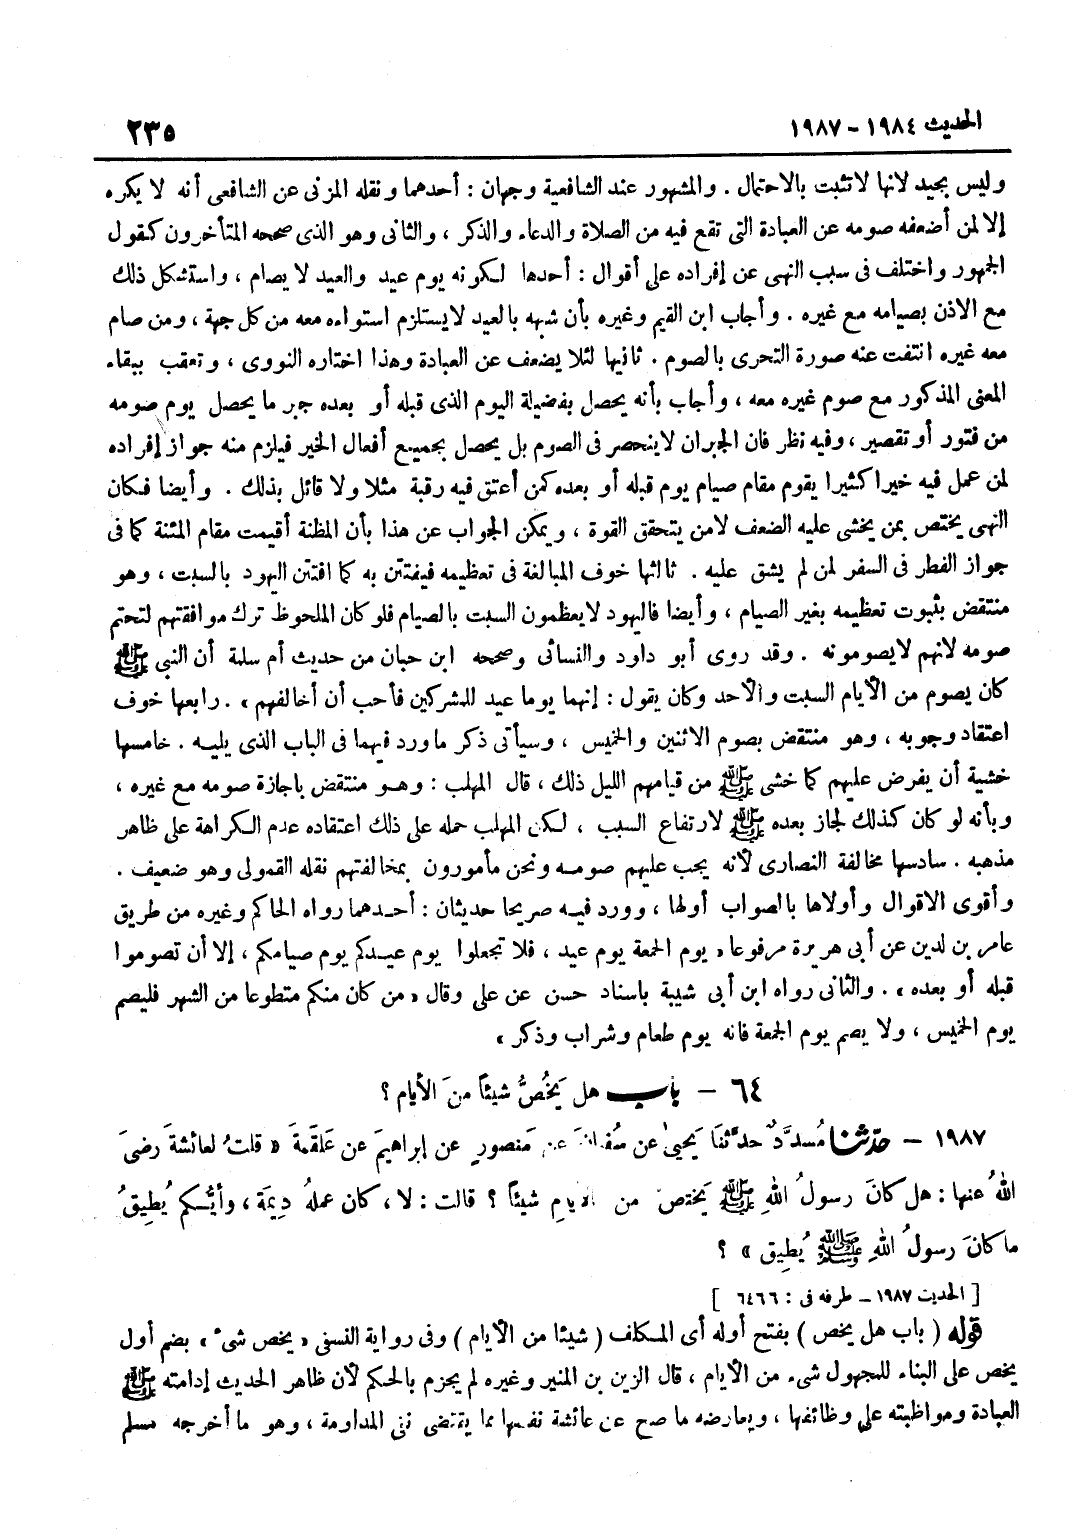 الحديث ١٩٨٤ - ١٩٨٧
٢٣٥
وليس بجيد لانها لا تثبت بالاحتمال . والمشهور عند الشافعية وجهان : أحدهما ونقله المزنى عن الشافعى أنه لا يكره
إلا لمن أضعفه صومه عن العبادة التى تقع فيه من الصلاة والدعاء والذكر ، والثانى وهو الذى صححه المتأخرون كقول
الجمهور واختلف فى سبب النهى عن إفراده على أقوال : أحدها لكونه يوم عيد والعيد لا يصام ، واستشكل ذلك
مع الاذن بصيامه مع غيره . وأجاب ابن القيم وغيره بأن شبهه بالعيد لا يستلزم استواءه معه من كل جهة ، ومن صام
معه غيره انتفت عنه صورة التحرى بالصوم . ثانيها لئلا يضعف عن العبادة وهذا اختاره النووى ، وتعقب ببقاء
المعنى المذكور مع صوم غيره معه ، وأجاب بأنه يحصل بفضيلة اليوم الذى قبله أو بعده جبر ما يحصل يوم صومه
من فتور أو تقصير ، وفيه نظر فان الجبران لا ينحصر فى الصوم بل يحصل بجميع أفعال الخير فيلزم منه جواز إفراده
لمن عمل فيه خيرا كثيرا يقوم مقام صيام يوم قبله أو بعده كمن أعتق فيه رقبة مثلا ولا قائل بذلك . وأيضا فكان
النهى يختص بمن يخشى عليه الضعف لا من يتحقق القوة ، ويمكن الجواب عن هذا بأن المظنة أقيمت مقام المئنة كما فى
جواز الفطر فى السفر لمن لم يشق عليه . ثالثها خوف المبالغة فى تعظيمه فيفتتن به كما افتتن اليهود بالسبت ، وهو
منتقض بثبوت تعظيمه بغير الصيام ، وأيضا فاليهود لا يعظمون السبت بالصيام فلو كان الملحوظ ترك موافقتهم لتحتم
صومه لانهم لا يصومونه . وقد روى أبو داود والنسائى وصححه ابن حبان من حديث أم سلمة أن النبي ﷺ
كان يصوم من الأيام السبت والأحد وكان يقول : إنهما يوما عيد للمشركين فأحب أن أخالفهم » . رابعها خوف
اعتقاد وجوبه ، وهو منتقض بصوم الاثنين والخميس ، وسيأتى ذكر ما ورد فيهما فى الباب الذى يليه . خامسها
خشية أن يفرض عليهم كما خشى ﷺ من قيامهم الليل ذلك ، قال المهلب : وهو منتقض باجازة صومه مع غيره ،
وبأنه لو كان كذلك لجاز بعده ﷺ لارتفاع السبب ، لكن المهلب حمله على ذلك اعتقاده عدم الكراهة على ظاهر
مذهبه . سادسها مخالفة النصارى لأنه يجب عليهم صومه ونحن مأمورون بمخالفتهم نقله القمولى وهو ضعيف .
وأقوى الاقوال وأولاها بالصواب أولها ، وورد فيه صريحا حديثان : أحدهما رواه الحاكم وغيره من طريق
عامر بن لدين عن أبى هريرة مرفوعا « يوم الجمعة يوم عيد ، فلا تجعلوا يوم عيدكم يوم صيامكم ، إلا أن تصوموا
قبله أو بعده » . والثانى رواه ابن أبى شيبة باسناد حسن عن على وقال « من كان منكم متطوعا من الشهر فليصم
يوم الخميس ، ولا يصم يوم الجمعة فانه يوم طعام وشراب وذكر »
٦٤ - باب هل يَخُصُّ شيئاً منَ الأيام ؟
١٩٨٧ - حدّثنا مُسدَّدٌ حدَّثنا يَحيىٰ عن سُفيانَ عن مَنصورٍ عن إبراهيمَ عن عَلقمةَ « قلتُ لعائشةَ رضىَ
اللهُ عنها : هل كانَ رسولُ اللهِ ﷺ يَختصّ من الأيامِ شيئاً ؟ قالت : لا ، كان عملهُ دِيمَة ، وأيُّكم يُطيقُ
ما كانَ رسولُ اللهِ ﷺ يُطِيق » ؟
[ الحديث ١٩٨٧ - طرفه فى : ٦٤٦٦ ]
قوله ( باب هل يخص ) بفتح أوله أى المكلف ( شيئا من الأيام ) وفى رواية النسفى « يخص شىء » بضم أول
يخص على البناء للمجهول شىء من الأيام ، قال الزين بن المنير وغيره لم يجزم بالحكم لأن ظاهر الحديث إدامته ﷺ
العبادة ومواظبته على وظائفها ، ويعارضه ما صح عن عائشة نفسها مما يقتضى نفى المداومة ، وهو ما أخرجه مسلم